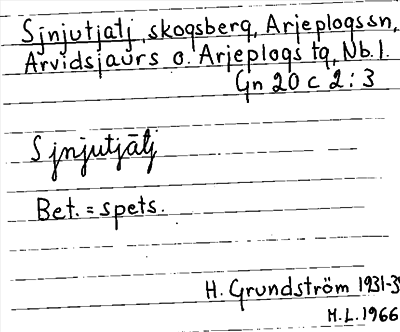 Sjnjutjatj, skogsberg, Arjeplogssn,
Arvidsjaurs o. Arjeplogs tg, Nb.l.
Gn 20 c 2:3
Sjnjutjātj
Bet. = spets.
H. Grundström 1931-3
H.L. 1966